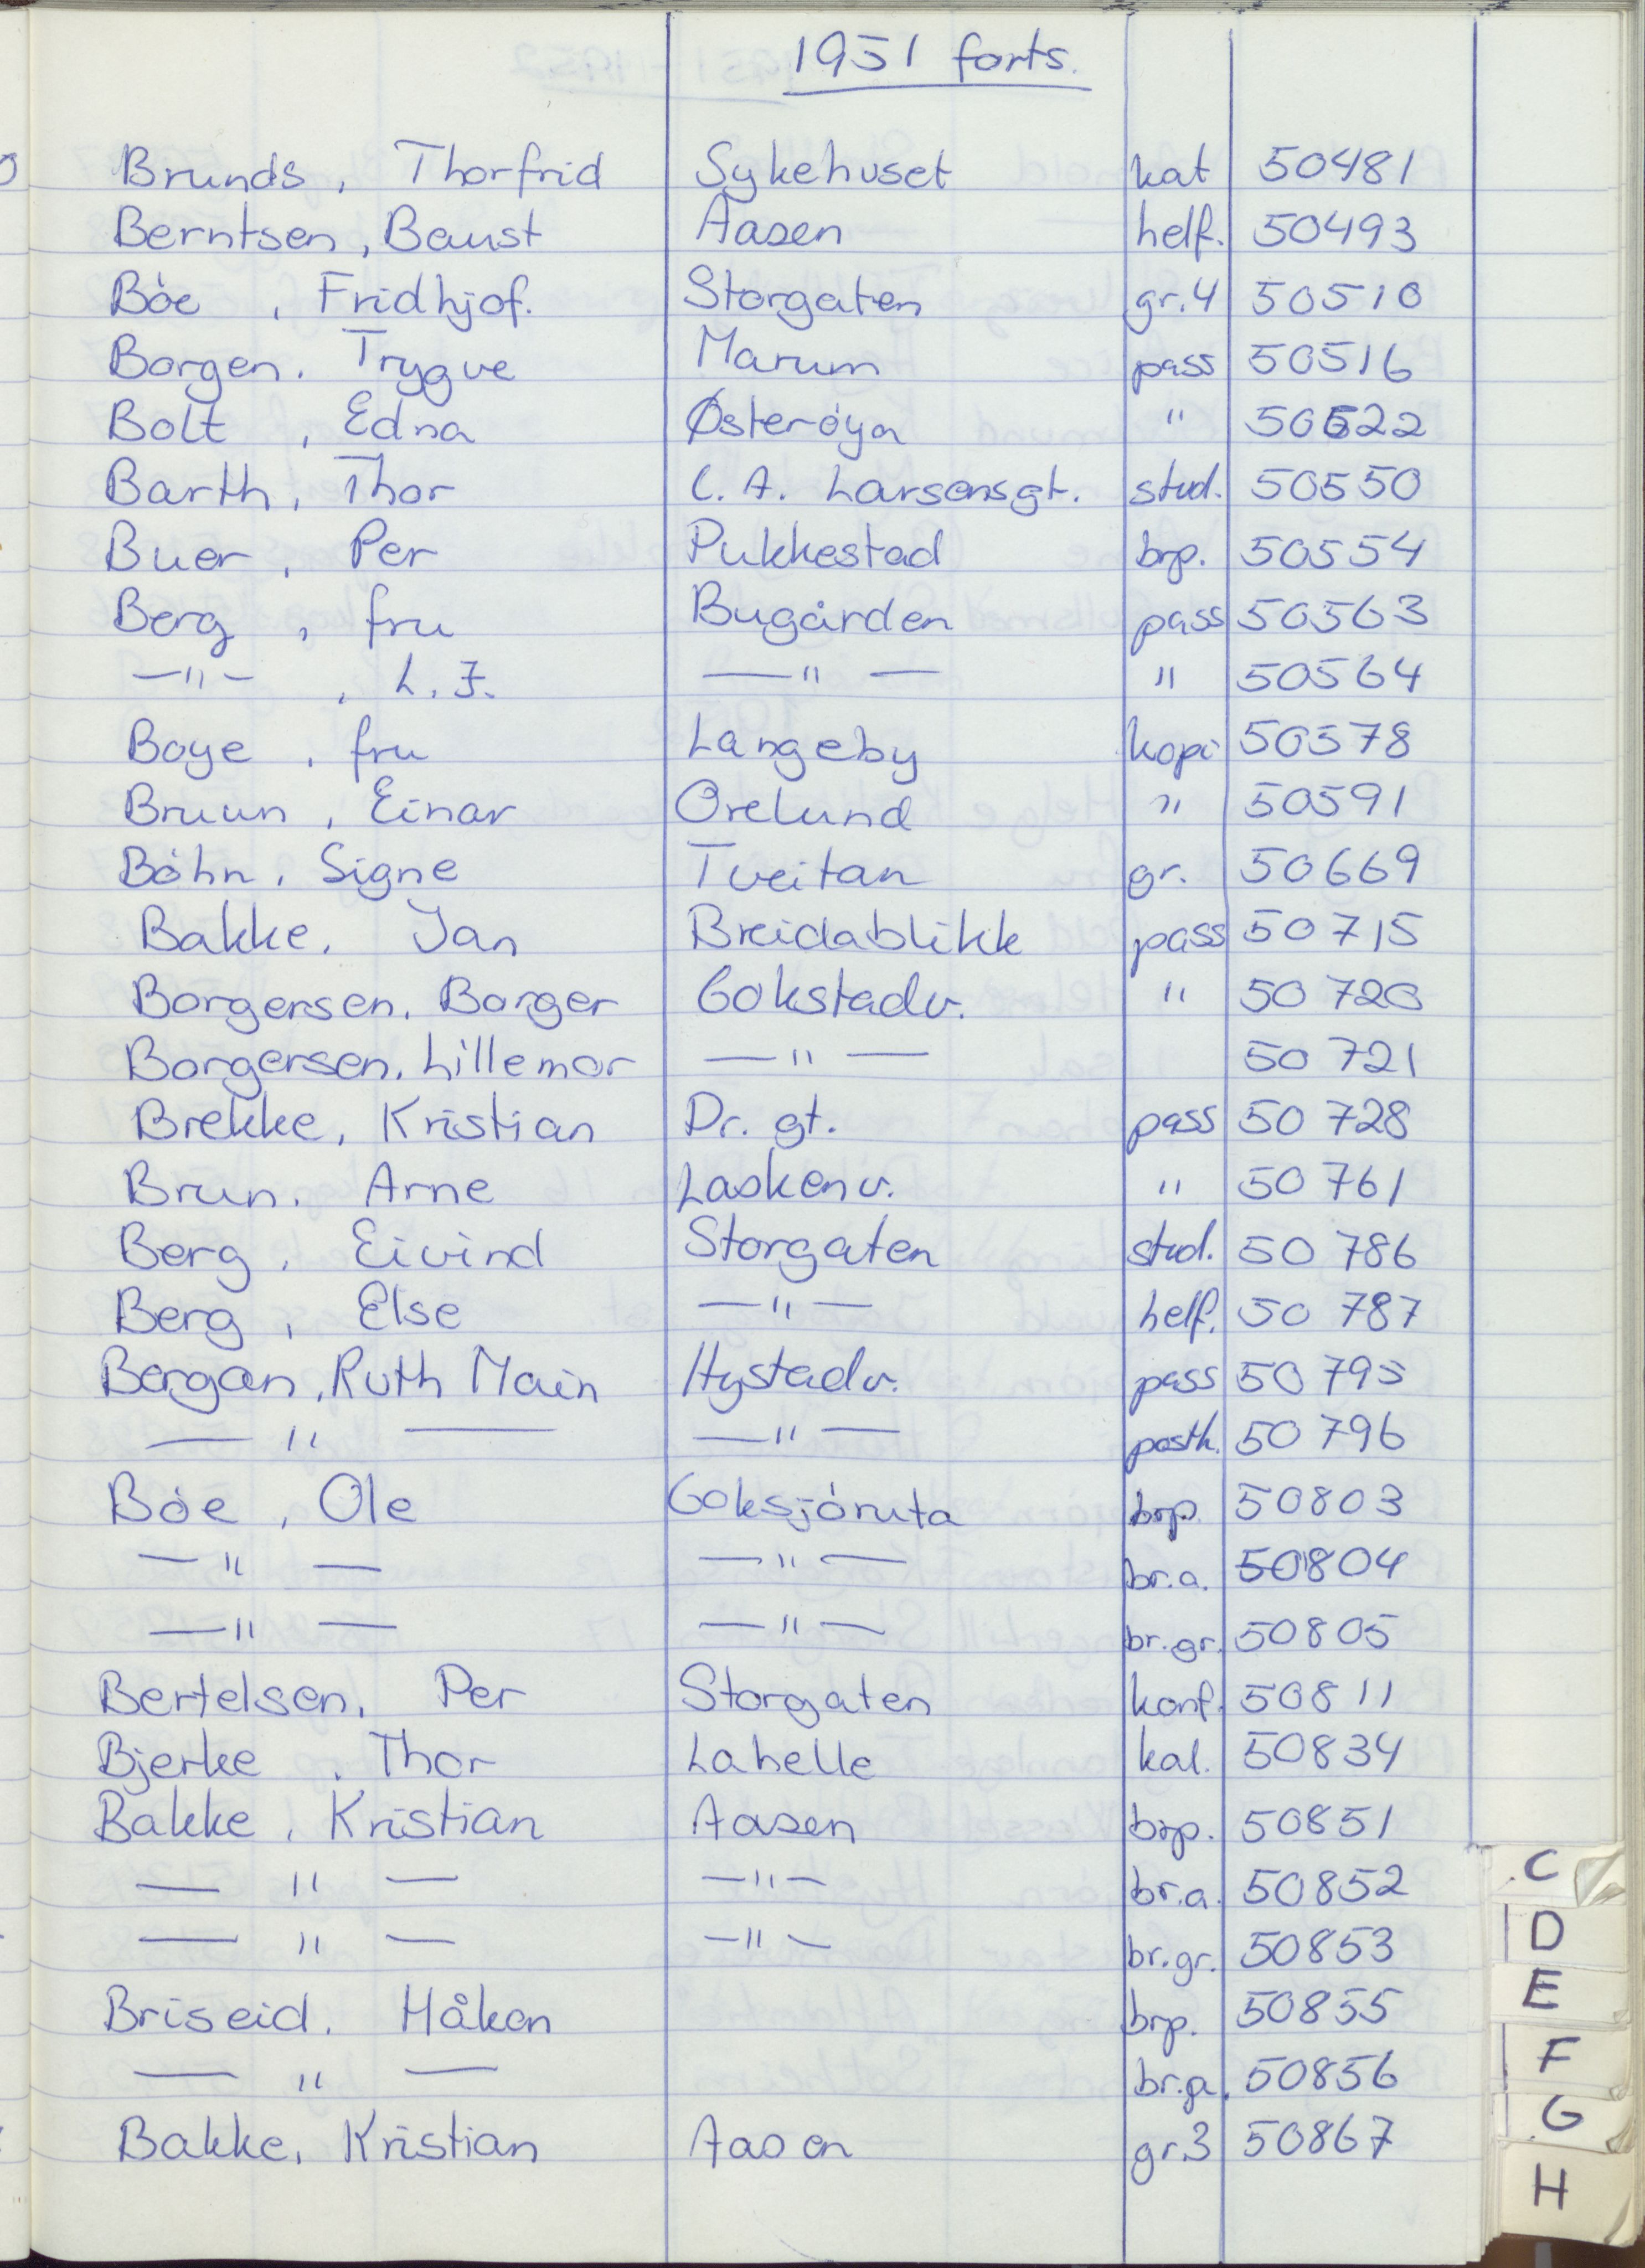 1951 forts.
Brunds, Thorfrid Sykehuset kat 50481
Berntsen, Baust Aasen helf. 50493
Bòe, Fridhjof. Storgaten gr.4 50510
Borgen. Trygve Marum pass 50516
Bolt, Edna Østerøya " 50522
Barth, Thor C. A. Larsensgt. stud. 50550
Buer, Per Pukkestad brp. 50554
Berg, fru Bugården pass 50563
—"—, L. J. —"— " 50564
Boye, fru Langeby kopi 50578
Bruun, Einar Orelund " 50591
Bòhn, Signe Tveitan gr. 50669
Bakke, Jan Breidablikk pass 50715
Borgersen, Borger Gokstadv. " 50720
Borgersen, Lillemor —"— 50721
Brekke, Kristian Dr. gt. pass 50728
Brun. Arne Laskenv. " 50761
Berg, Eivind Storgaten stud. 50786
Berg, Else —"— helf. 50787
Borgan, Ruth Main Hystadv. pass 50795
—"— —"— postk. 50796
Bòe, Ole Goksjòruta brp. 50803
—"— —"— br.a. 50804
—"— —"— br.gr. 50805
Bertelsen, Per Storgaten konf. 50811
Bjerke, Thor Lahelle kal. 50834
Bakke, Kristian Aasen brp. 50851
—"— —"— br.a. 50852
—"— —"— br.gr. 50853
Briseid, Håkon brp. 50855
—"— br.a. 50856
Bakke, Kristian Aasen gr.3 50867
C
D
E
F
G
H